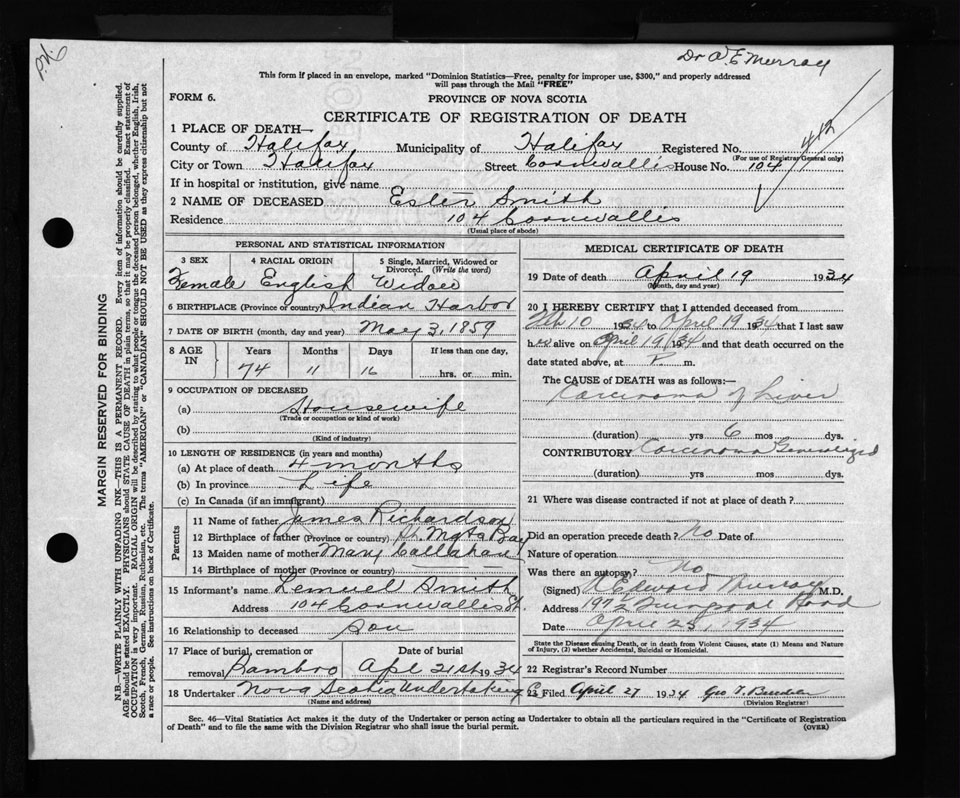 Dr A. E Murray
This form if placed in an envelope, marked "Dominion Statistics—Free, penalty for improper use, $300," and properly addressed
will pass through the Mail "FREE"
FORM 6.
PROVINCE OF NOVA SCOTIA
CERTIFICATE OF REGISTRATION OF DEATH
1 PLACE OF DEATH—
County of Halifax Municipality of Halifax Registered No. 482
(For use of Registrar General only)
City or Town Halifax Street Cornwallis House No. 104
If in hospital or institution, give name
2 NAME OF DECEASED Ester Smith
Residence 104 Cornwallis
(Usual place of abode)
PERSONAL AND STATISTICAL INFORMATION
3 SEX 4 RACIAL ORIGIN 5 Single, Married, Widowed or Divorced. (Write the word)
Female English Widow
6 BIRTHPLACE (Province or country) Indian Harbor
7 DATE OF BIRTH (month, day and year) May 3, 1859
8 AGE IN Years Months Days If less than one day,
74 11 16 hrs. or min.
9 OCCUPATION OF DECEASED
(a) Housewife
(Trade or occupation or kind of work)
(b)
(Kind of industry)
10 LENGTH OF RESIDENCE (in years and months)
(a) At place of death 4 months
(b) In province Life
(c) In Canada (if an immigrant)
Parents
11 Name of father James Richardson
12 Birthplace of father (Province or country) St. Mgts Bay
13 Maiden name of mother Mary Callahan
14 Birthplace of mother (Province or country)
15 Informant's name Lemuel Smith
Address 104 Cornwallis St.
16 Relationship to deceased Son
17 Place of burial, cremation or removal Date of burial
Bambro Apl 21st 1934
18 Undertaker Nova Scotia Undertaking Co
(Name and address)
MEDICAL CERTIFICATE OF DEATH
19 Date of death April 19 1934
(Month, day and year)
20 I HEREBY CERTIFY that I attended deceased from
Feb 10 1934 to April 19 1934 that I last saw
her alive on April 19 1934 and that death occurred on the
date stated above, at P. m.
The CAUSE of DEATH was as follows:—
Carcinoma of Liver
(duration) yrs 6 mos dys.
CONTRIBUTORY Carcinoma Generalized
(duration) yrs mos dys.
21 Where was disease contracted if not at place of death?
Did an operation precede death? No Date of
Nature of operation
Was there an autopsy? No
(Signed) A Edward Murray M.D.
Address 197½ Liverpool Road
Date April 25, 1934
State the Disease causing Death, or in death from Violent Causes, state (1) Means and Nature
of Injury, (2) whether Accidental, Suicidal or Homicidal.
22 Registrar's Record Number
23 Filed April 27 1934 Geo T.
(Division Registrar)
Sec. 46—Vital Statistics Act makes it the duty of the Undertaker or person acting as Undertaker to obtain all the particulars required in the "Certificate of Registration
of Death" and to file the same with the Division Registrar who shall issue the burial permit. (OVER)
MARGIN RESERVED FOR BINDING
N.B.—WRITE PLAINLY WITH UNFADING INK—THIS IS A PERMANENT RECORD. Every item of information should be carefully supplied.
AGE should be stated EXACTLY. PHYSICIANS should STATE CAUSE OF DEATH in plain terms, so that it may be properly classified. Exact statement of
OCCUPATION is very important. RACIAL ORIGIN will be described by stating to what people or tongue the deceased person belonged, whether English, Irish,
Scotch, French, German, Russian, Ruthenian, etc. The terms "AMERICAN" or "CANADIAN" SHOULD NOT BE USED as they express citizenship but not
a race or people. See instructions on back of Certificate.